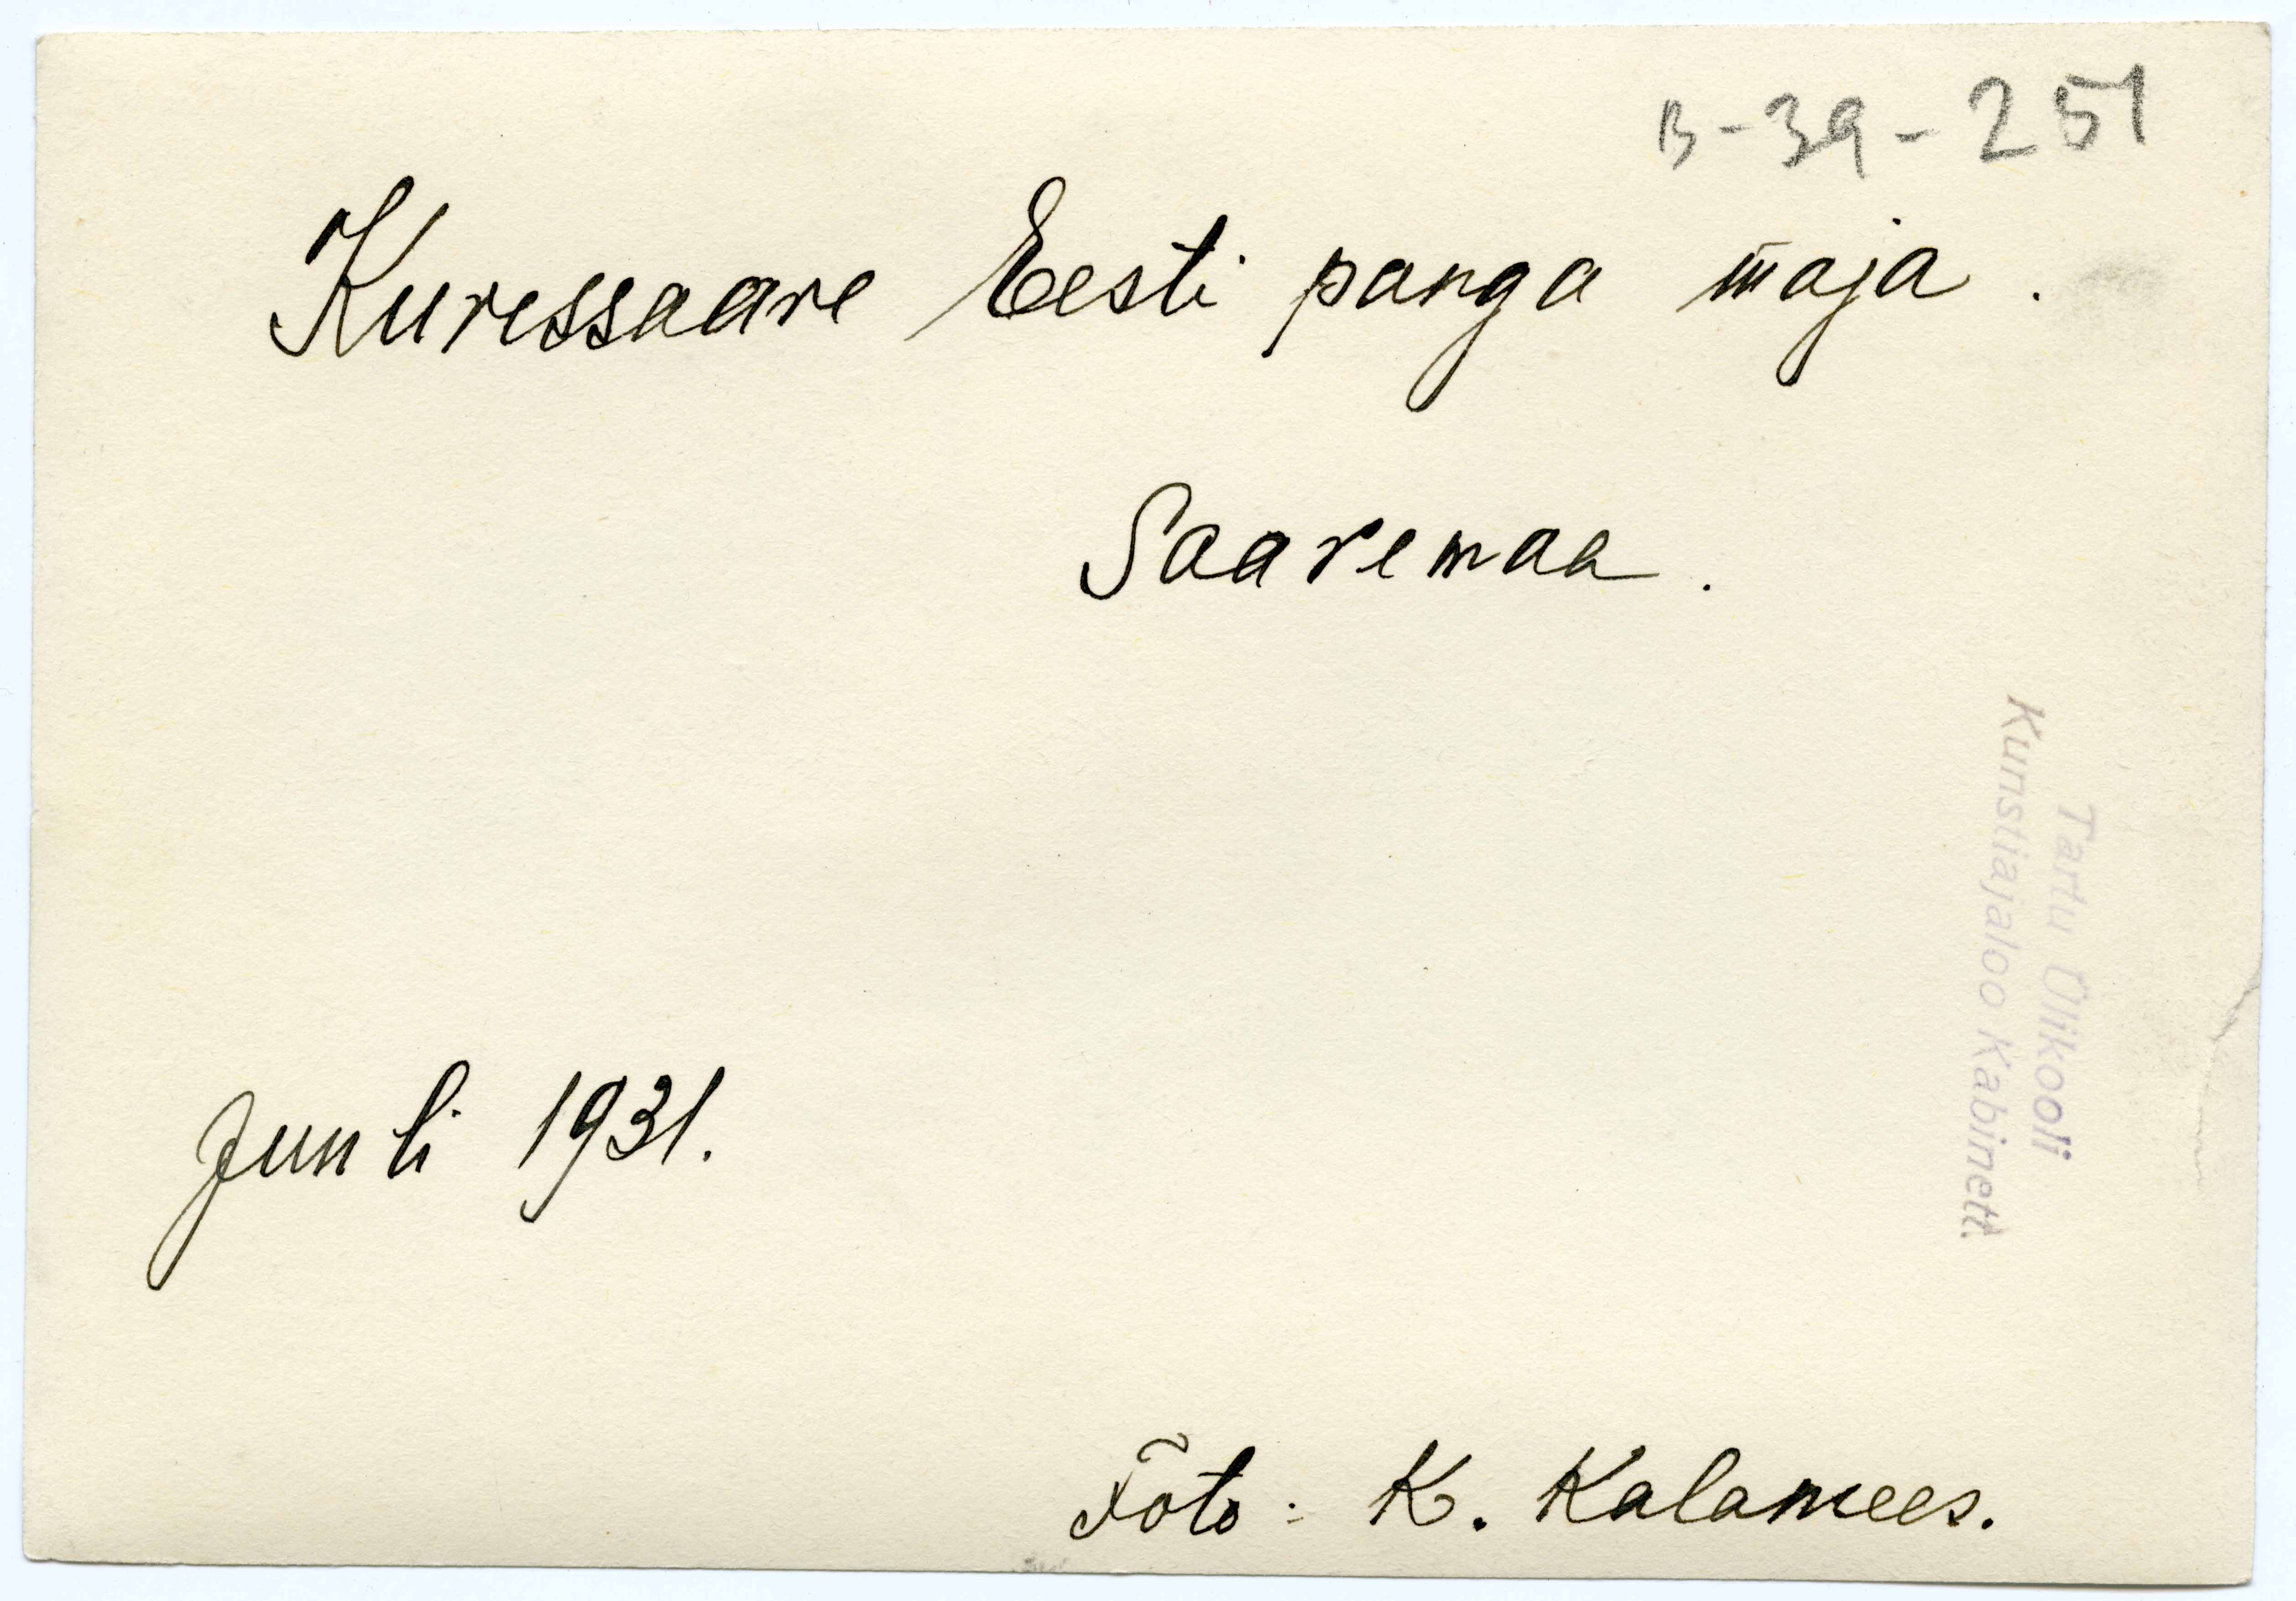 B-39-251
Kuressaare Eesti panga maja.
Saaremaa.
Tartu Ülikooli
Kunstiajaloo Kabinett.
Juuli 1931.
Foto: K. Kalamees.